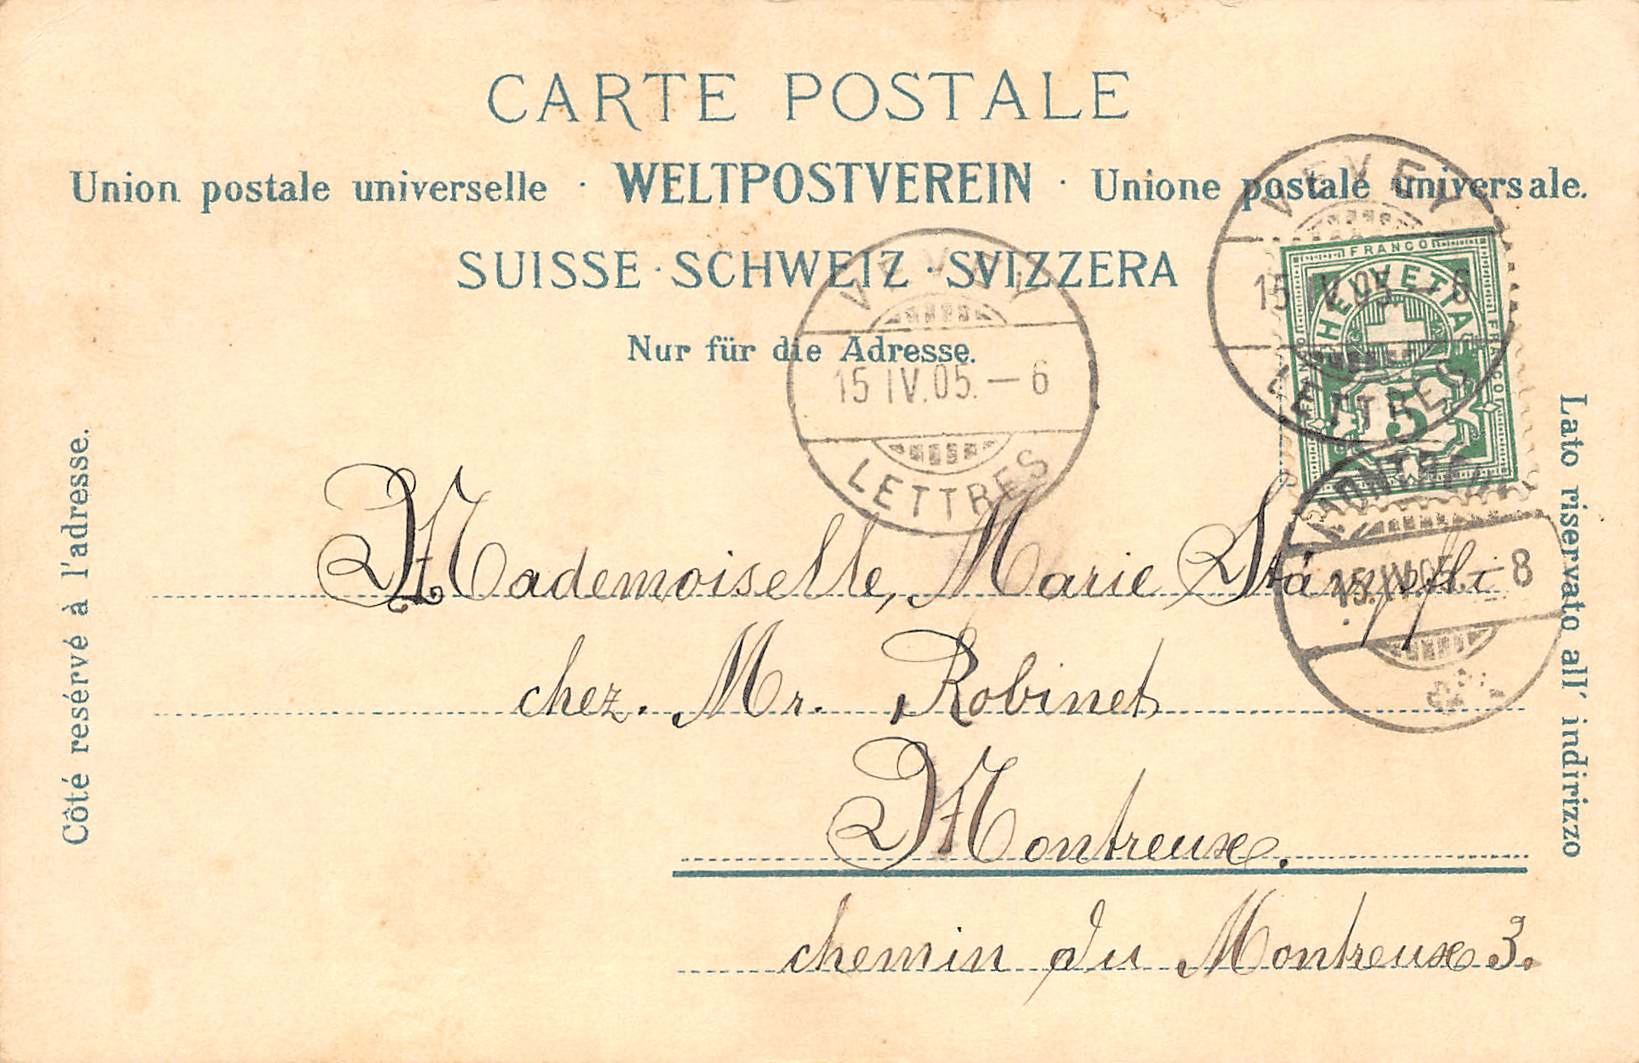 CARTE POSTALE
Union postale universelle · WELTPOSTVEREIN · Unione postale universale.
SUISSE · SCHWEIZ · SVIZZERA
Nur für die Adresse.
Côté resérvé à l'adresse.
Lato riservato all' indirizzo
VEVEY
15 IV.05.–6
LETTRES
VEVEY
15 IV.05.–6
LETTRES
FRANCO
HELVETIA
FRANCO
5
15.IV.05.–8
Mademoiselle, Marie Stämpfli
chez. Mr. Robinet
Montreux.
chemin du Montreux 3.